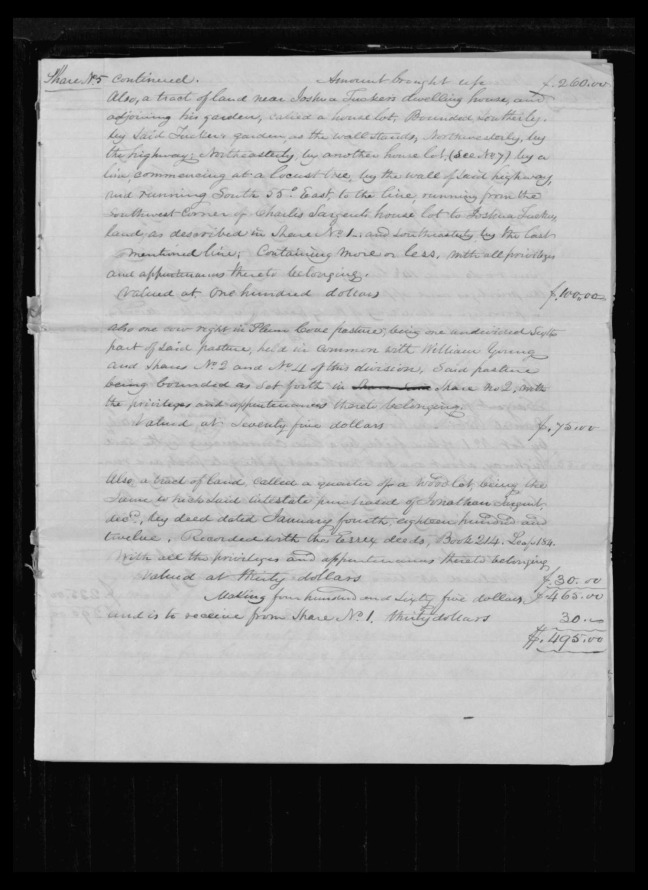 Share No 5 continued. Amount brought up $.260.00
Also, a tract of land near Joshua Tucker's dwelling house, and
adjoining his garden, called a house lot, Bounded Southerly,
by Said Tucker's garden, as the wall stands, Northwesterly, by
the highway; Northeasterly, by another house lot, (See No 7) by a
line, commencing at a locust tree, by the wall of Said highway,
and running South 55° East, to the line, running from the
Southwest corner of Charles Sargent house lot to Joshua Tucker
land, as described in Share No 1. and Southeasterly by the last
mentioned line; Containing more or less, with all privileges
and appurtenances thereto belonging.
Valued at One hundred dollars $.100.00
Also one cow right in Plum Cove pasture, being one undivided Sixth
part of Said pasture, held in common with William Young
and Shares No 2 and No 4 of this division, Said pasture
being bounded as Set forth in Share No 2, with
the privileges and appurtenances thereto belonging.
Valued at Seventy five dollars $.75.00
Also a tract of land, called a quarter of a Wood lot, being the
Same which Said intestate purchased of Jonathan Sargent,
decd, by deed dated January fourth, eighteen hundred and
twelve, Recorded with the Essex deeds, Book 214. Leaf 184.
With all the privileges and appurtenances thereto belonging
Valued at thirty dollars $.30.00
Making four hundred and Sixty five dollars, $465.00
and is to receive from Share No 1. thirty dollars 30.00
$.495.00